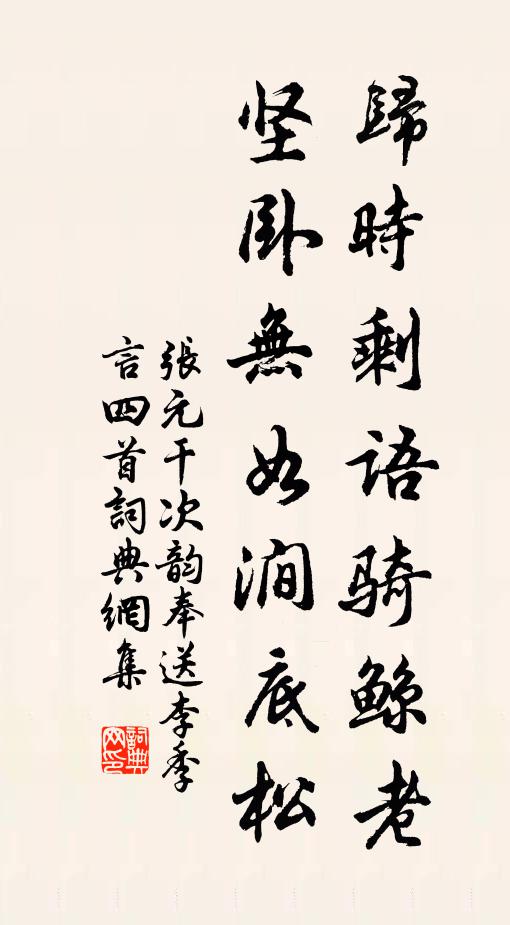 歸時剩語骑鲸老
坚卧無如澗底松
張元干次韵奉送李季
言四首詞典網集
詞典
网印